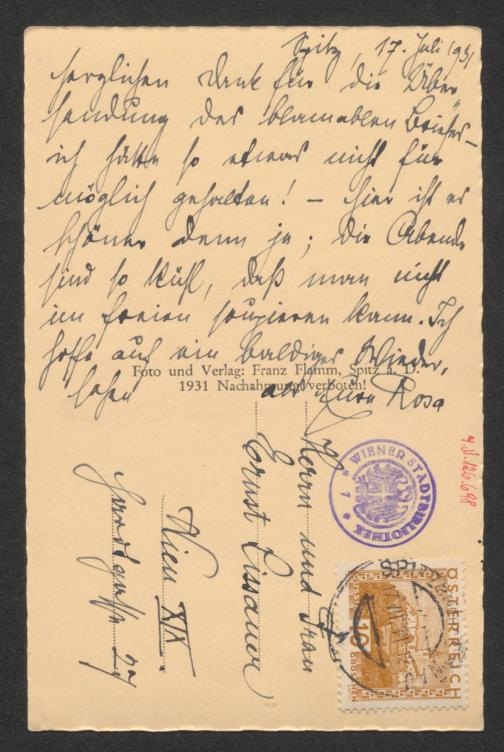 Spitz, 17. Juli 1931
herzlichen Dank für die Über
sendung des blamablen Briefes –
ich hätte so etwas nicht für
möglich gehalten! – hier ist es
schöner denn je; die Abende
sind so kühl, daß man nicht
im freien soupieren kann. Ich
hoffe auf ein baldiges Wieder,
sehen
Rosa
Foto und Verlag: Franz Flamm, Spitz a. D.
1931 Nachahmung verboten!
Herrn und Frau
Ernst Lissauer
Wien XIX
Hardtgasse 27
WIENER STADTBIBLIOTHEK
1
ÖSTERREICH
10
GROSCHEN
SPITZ